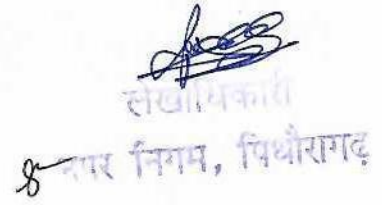 लेखाधिकारी
नगर निगम, पिथौरागढ़